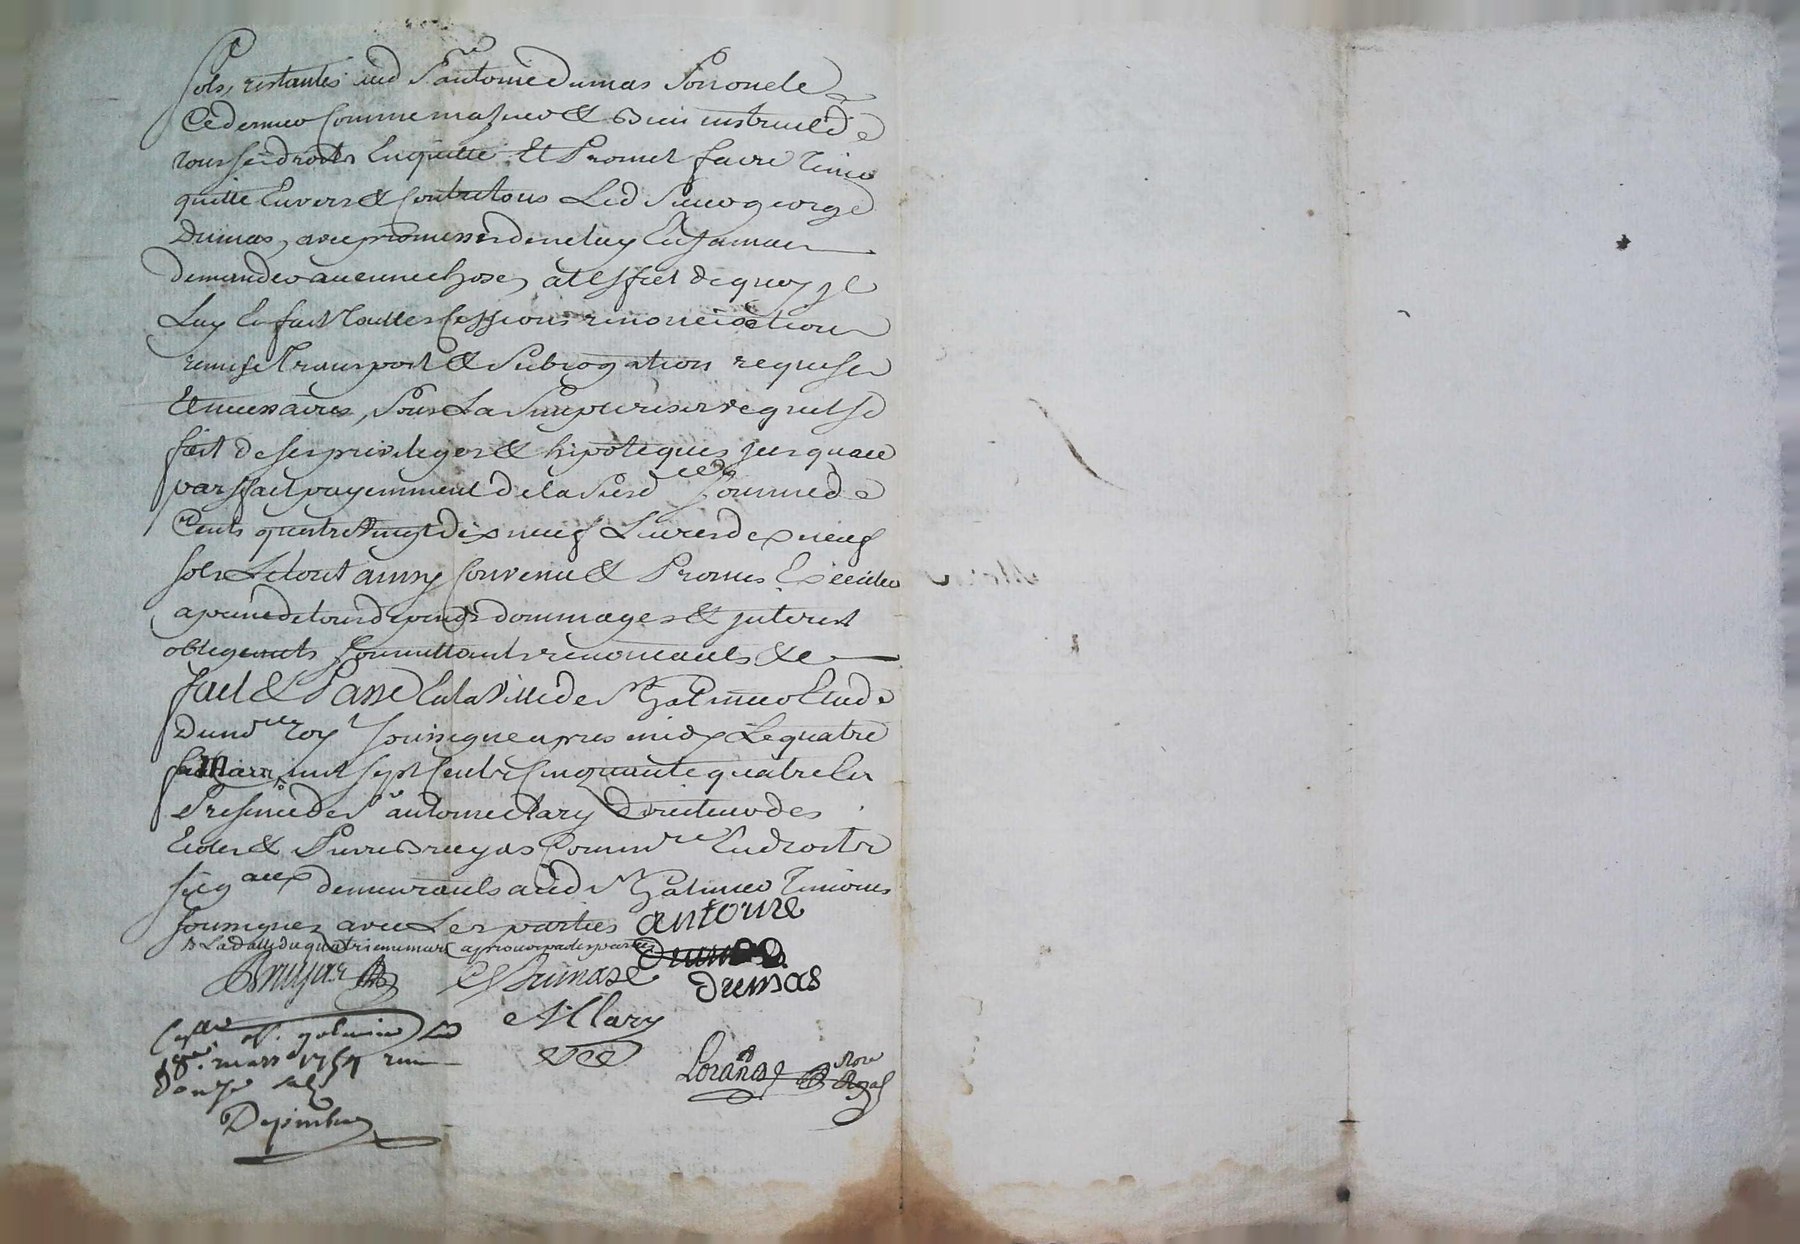 sols, restantes aud Sr antoine Dumas Son oncle
Ce dernier Comme majeur & Bien instruict de
tous ses droits En quitte Et Promet faire tenir
quitte Envers & Contre tous Led Sieur george
Dumas, avec promesses de ne luy En jamais
demander aucune chose, at Esffect de quoy il
Luy En fait Touttes Cessions
remise Transport & Subrogation requises
Et necessaires, Sous La Simple reserve quil se
fait de ses privileges & hipoteques jusquau
parffait payemment de la Susd Somme de
Cents quatre Vingt dix neuf Livres dix neuf
sols Le tout ainsy Convenu & Promis Executer
a peine de tous depends dommages & interest
obligeants soumettants renonceants &c
fait & Passé En la Ville de St Galmier Etude
Du nore roy sousigne apres midy Le quatre
Mars mil sept Cents Cinquante quatre En
Presence de Sr antoine Clary Directeur des
Aides & Pierre Bruyas Comm re En droits
seig aux demeurants aud St Galmier Temoins
sousignez avec Les parties antoine
La datte du quatrieme mars aprouvée par les parties
Dumas
Bruyas Dumas Dumas
A Clary
Lorand Nore Royal
Cllé a St. galmier le
18e. mars 1754 reçu
douze sols
Depimber